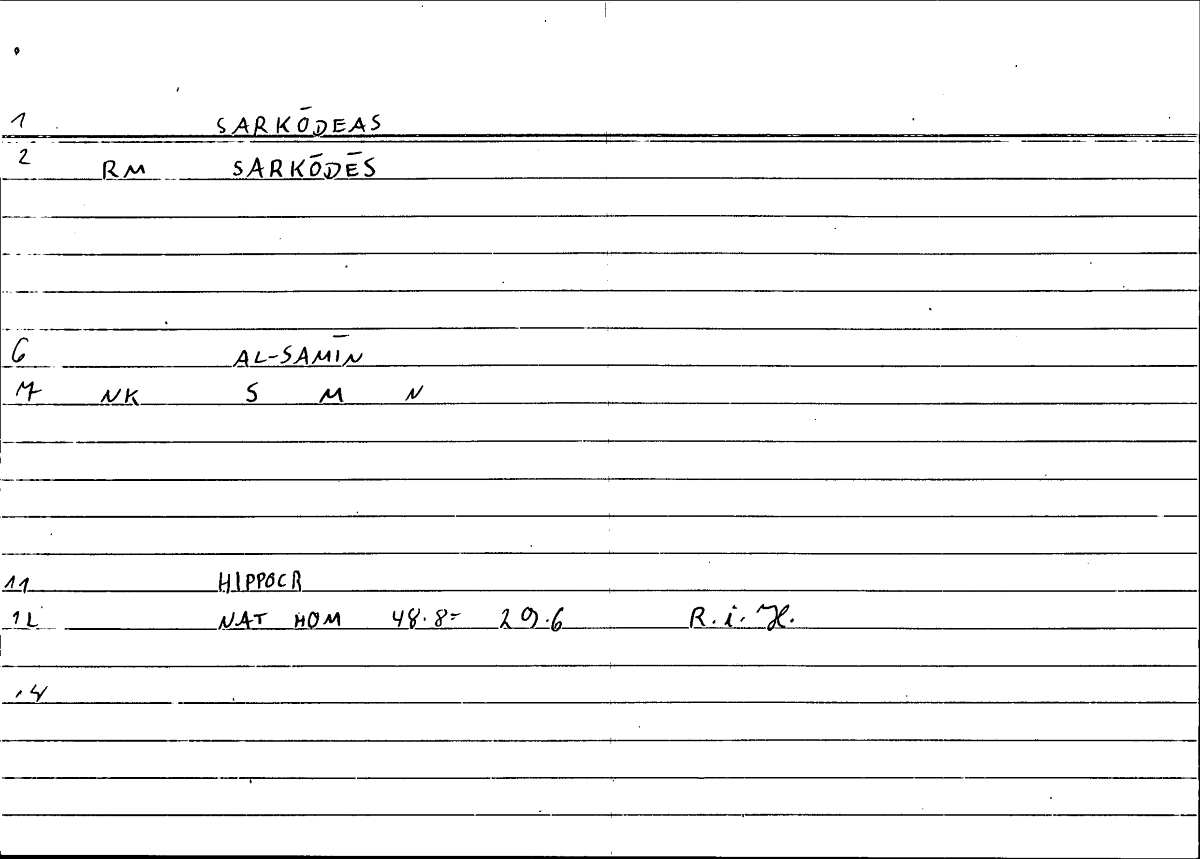 1 SARKŌDEAS
2 RM SARKŌDĒS
6 AL-SAMĪN
7 NK S M N
11 HIPPOCR
12 NAT HOM 48.8= 29.6 R.i.H.